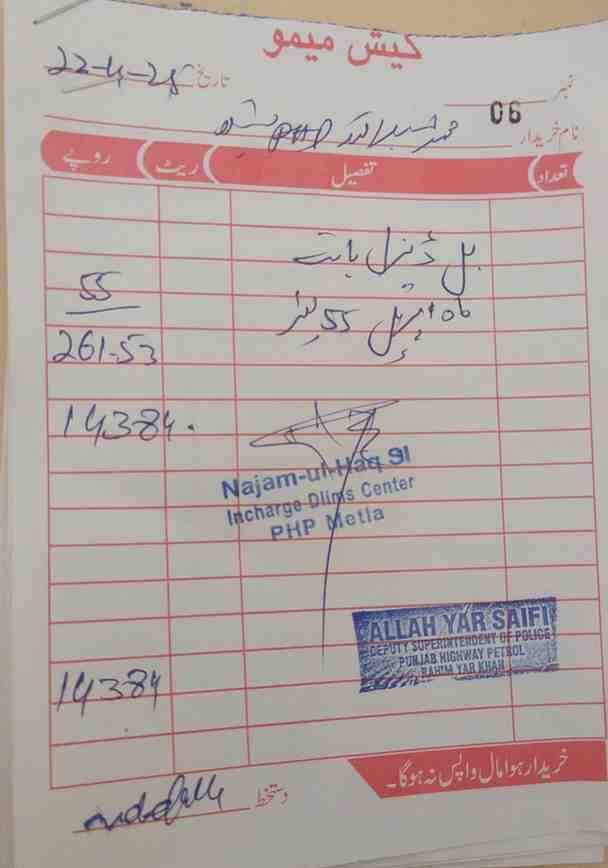 کیش میمو
نمبر 06 تاریخ 22-4-25
نام خریدار محمد PHP
تعداد تفصیل ریٹ روپے
بل ڈیزل بابت
55
06 اپریل 55 لیٹر
261-53
14384.
Najam-ul-Haq SI
Incharge Dlims Center
PHP Metla
ALLAH YAR SAIFI
DEPUTY SUPERINTENDENT OF POLICE
PUNJAB HIGHWAY PETROL
RAHIM YAR KHAN
14384
خریدا ہوا مال واپس نہ ہو گا۔
دستخط